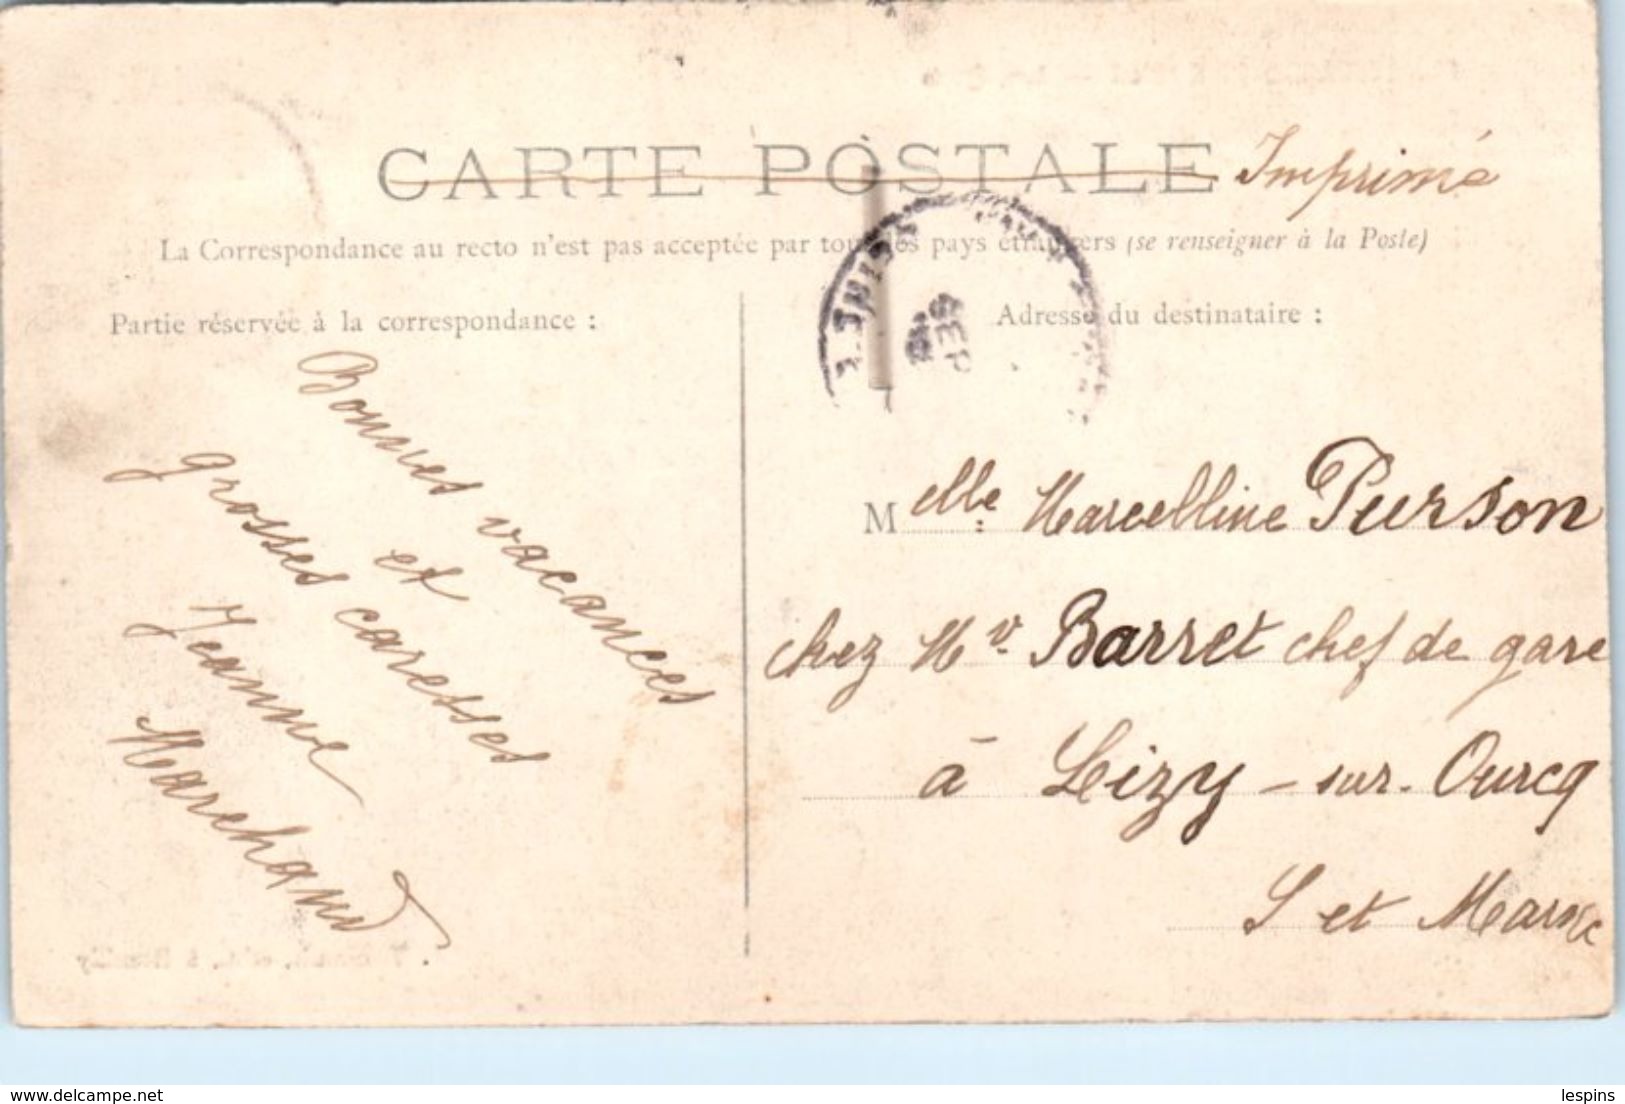 CARTE POSTALE Imprimé
La Correspondance au recto n'est pas acceptée par tous les pays étrangers (se renseigner à la Poste)
Partie réservée à la correspondance :
Bonnes vacances
et
grosses caresses
Jeanne
Marchand
Adresse du destinataire :
Melle Marcelline Purson
chez Mr. Barret chef de gare
à Lizy-sur-Ourcq
S et Marne
SEP
delcampe.net
lespins